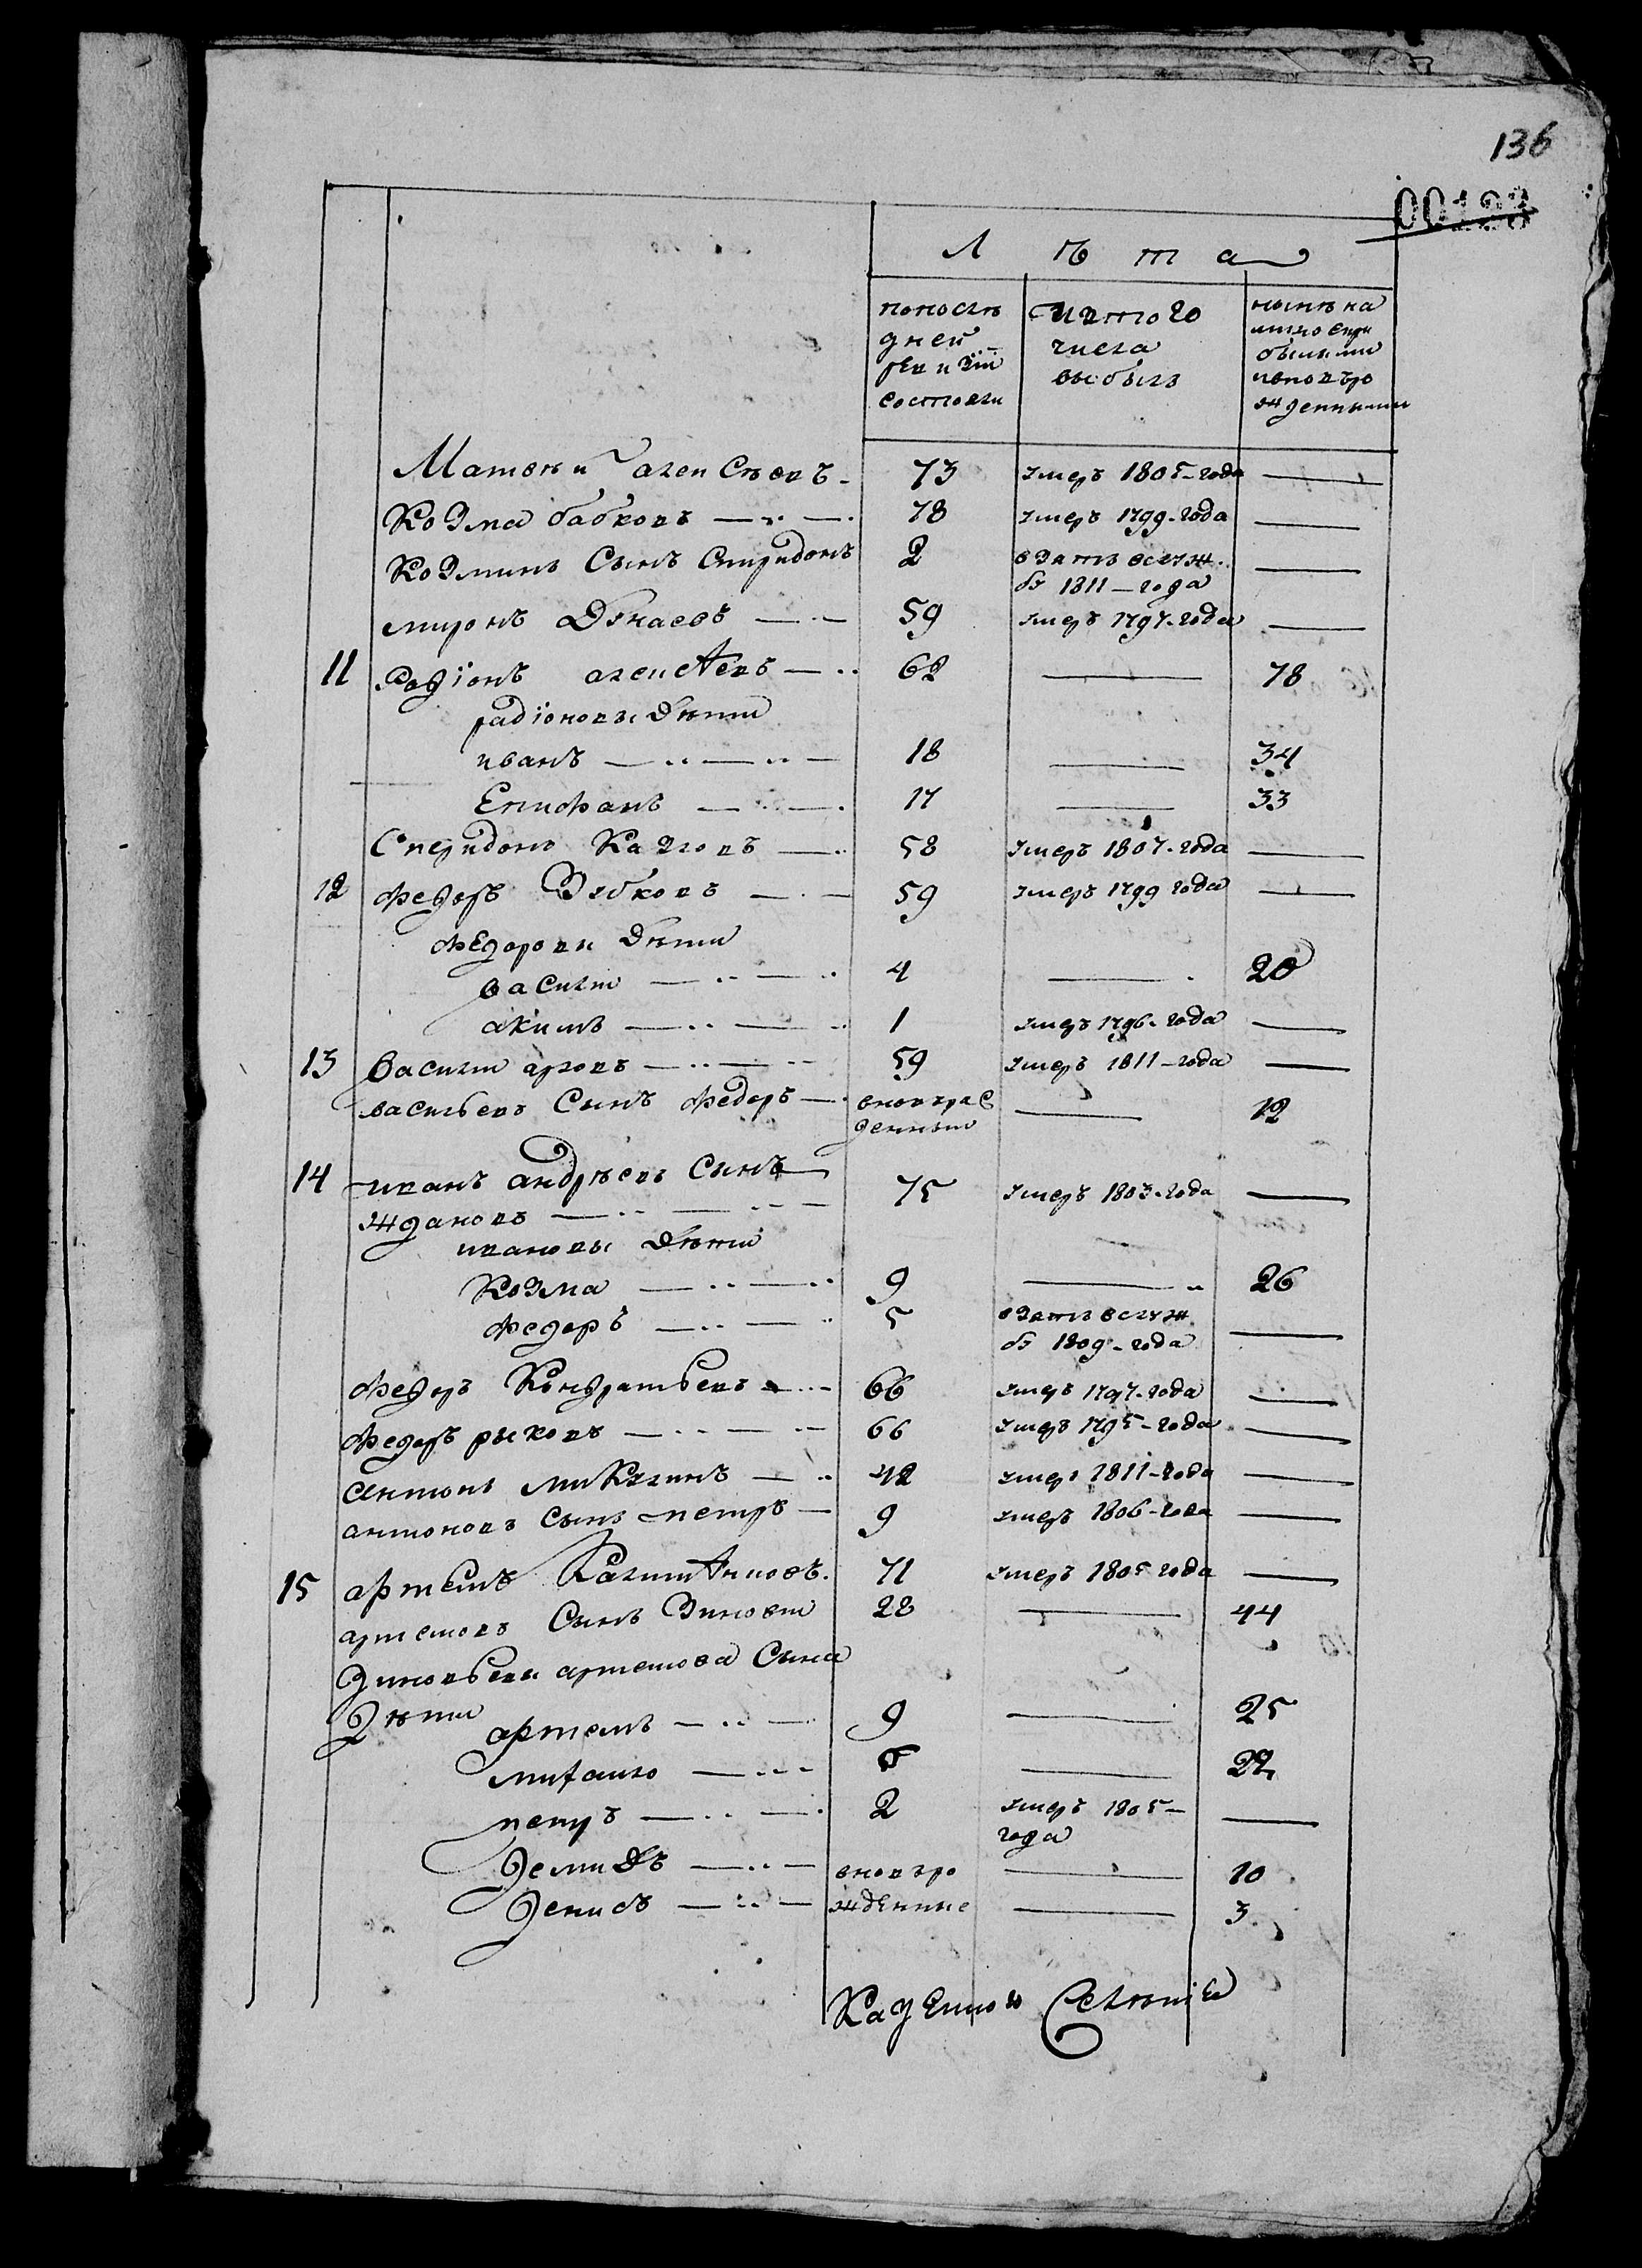 136
00123
Лѣта
по после
дней
ревизiи
состояли
ис того
числа
выбылъ
нынѣ на
лицо с при
былыми
и вновъ ро
жденными
Матвѣи алеисѣевъ 73 умеръ 1805-года —
Козма бабковъ 78 умеръ 1799-года —
Козминъ Сынъ Спиридонъ 2 взятъ вслуж
бу 1811-года —
миронъ 59 умеръ 1797-года —
11 Радiонъ алеисѣевъ 62 — 78
радiоновы дѣти
иванъ 18 — 34
Епифанъ 17 — 33
Спиридонъ Козловъ 58 умеръ 1807-года —
12 федоръ Зубковъ 59 умеръ 1799 года —
федоровы дѣти
василiи 4 — 20
акимъ 1 умеръ 1796-года —
13 василiи 59 умеръ 1811-года —
васильевъ Сынъ федоръ вновърож
денныи — 12
14 иванъ андрѣевъ Сынъ
ждановъ 75 умеръ 1803-года —
ивановы дѣти
Козма 9 — 26
федоръ 5 взятъ вслуж
бу 1809-года —
федоръ Кондратьевъ 66 умеръ 1797-года —
федоръ рыковъ 66 умеръ 1795-года —
антонъ микулинъ 42 умеръ 1811-года —
антоновъ сынъ петръ 9 умеръ 1806-года —
15 артемъ 71 умеръ 1805 года —
артемовъ Сынъ Зиновеи 28 — 44
Зиновьевы артемова Сына
Дѣти артемъ 9 — 25
михаило 6 — 22
петръ 2 умеръ 1805-
года —
Демидъ вновъро — 10
Денисъ жденные — 3